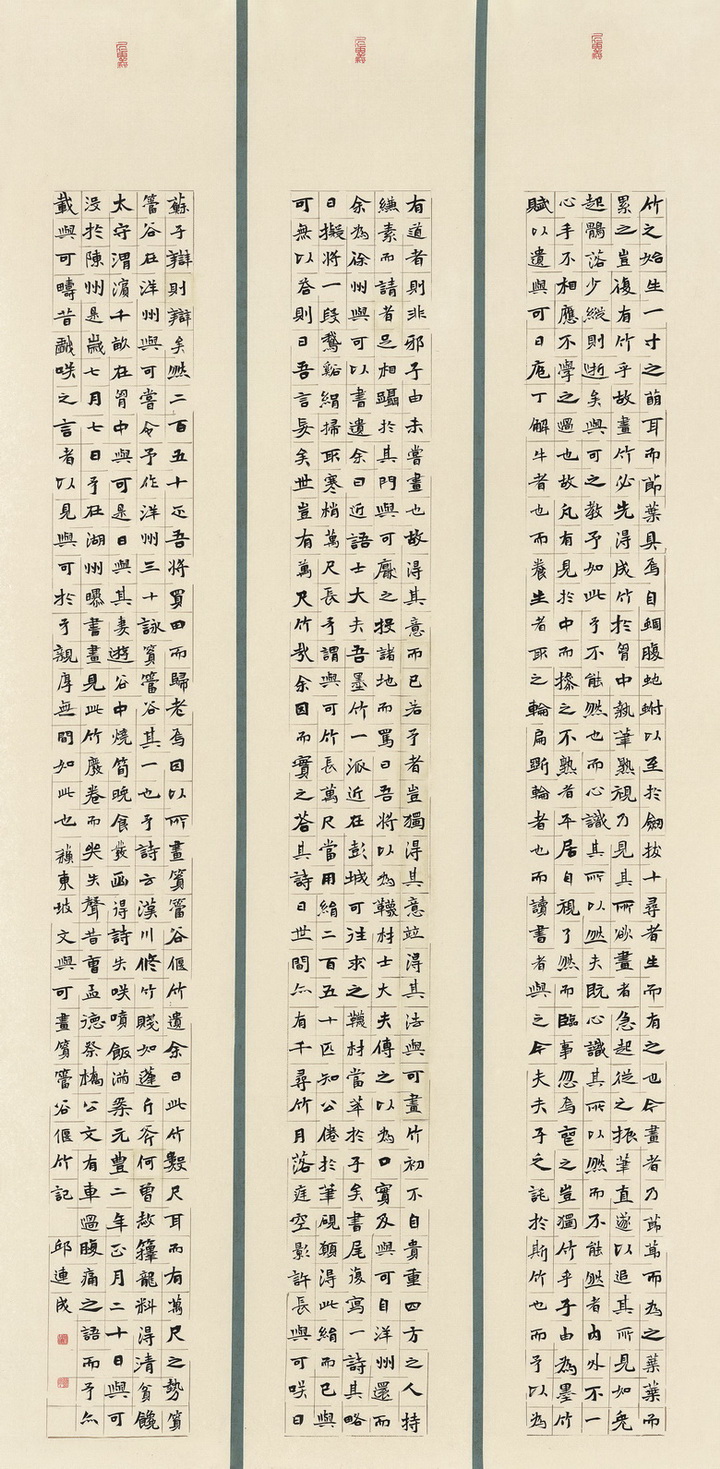 竹之始生一寸之萌耳而節葉具焉自蜩腹蛇蚹以至於劒拔十尋者生而有之也今畫者乃節節而為之葉葉而
累之豈復有竹乎故畫竹必先得成竹於胷中執筆熟視乃見其所欲畫者急起從之振筆直遂以追其所見如兔
起鶻落少縱則逝矣與可之教予如此予不能然也而心識其所以然夫既心識其所以然而不能然者內外不一
心手不相應不學之過也故凡有見於中而操之不熟者平居自視了然而臨事忽焉喪之豈獨竹乎子由為墨竹
賦以遺與可曰庖丁解牛者也而養生者取之輪扁斲輪者也而讀書者與之今夫夫子之託於斯竹也而予以為
有道者則非邪子由未嘗畫也故得其意而已若予者豈獨得其意竝得其法與可畫竹初不自貴重四方之人持
縑素而請者足相躡於其門與可厭之投諸地而罵曰吾將以為韈材士大夫傳之以為口實及與可自洋州還而
余為徐州與可以書遺余曰近語士大夫吾墨竹一派近在彭城可往求之韈材當萃於子矣書尾復寫一詩其略
曰擬將一段鵝谿絹掃取寒梢萬尺長予謂與可竹長萬尺當用絹二百五十匹知公倦於筆硯願得此絹而已與
可無以答則曰吾言妄矣世豈有萬尺竹哉余因而實之答其詩曰世間亦有千尋竹月落庭空影許長與可咲曰
蘇子辯則辯矣然二百五十疋吾將買田而歸老焉因以所畫篔簹谷偃竹遺余曰此竹數尺耳而有萬尺之勢篔
簹谷在洋州與可嘗令予作洋州三十詠篔簹谷其一也予詩云漢川修竹賤如蓬斤斧何曾赦籜龍料得清貧饞
太守渭濱千畝在胷中與可是日與其妻遊谷中燒筍晚食發函得詩失咲噴飯滿案元豐二年正月二十日與可
沒於陳州是歲七月七日予在湖州曝書畫見此竹廢卷而哭失聲昔曹孟德祭橋公文有車過腹痛之語而予亦
載與可疇昔戲咲之言者以見與可於予親厚無間如此也 東坡文與可畫篔簹谷偃竹記 邱連成